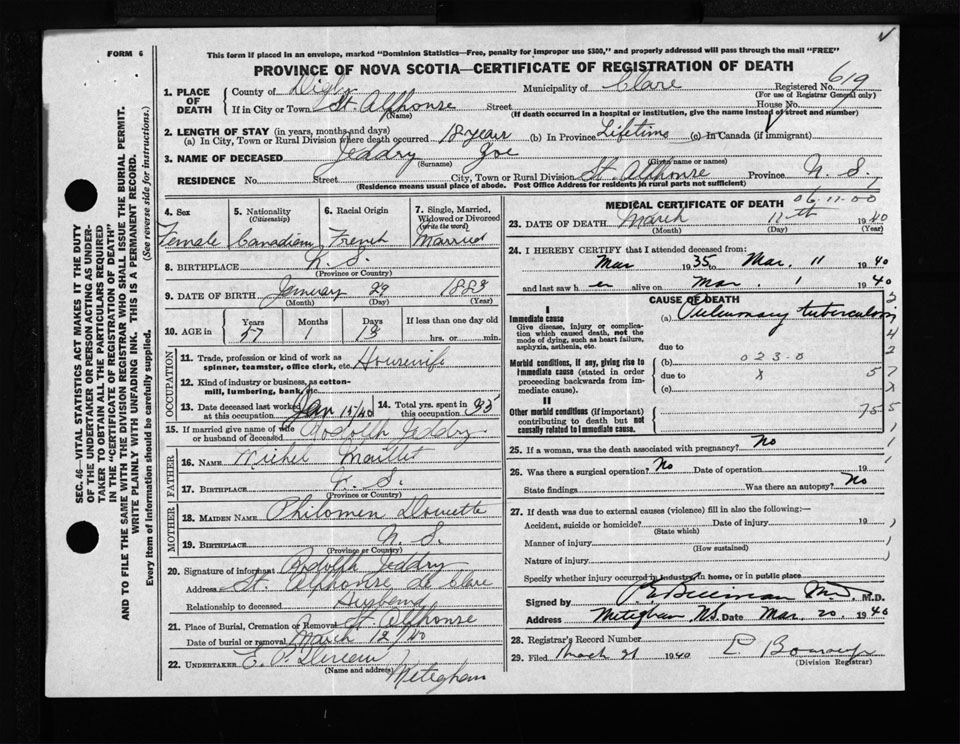 FORM 6
This form if placed in an envelope, marked "Dominion Statistics—Free, penalty for improper use $300," and properly addressed will pass through the mail "FREE"
PROVINCE OF NOVA SCOTIA—CERTIFICATE OF REGISTRATION OF DEATH
1. PLACE OF DEATH County of Digby Municipality of Clare Registered No. 619
(For use of Registrar General only)
If in City or Town St. Alphonse Street House No.
(Name) (If death occurred in a hospital or institution, give the name instead of street and number)
2. LENGTH OF STAY (in years, months and days)
(a) In City, Town or Rural Division where death occurred 18 years (b) In Province Lifetime (c) In Canada (if immigrant)
3. NAME OF DECEASED Jeddry Zoe
(Surname) (Given name or names)
RESIDENCE No. Street City, Town or Rural Division St. Alphonse Province N. S.
(Residence means usual place of abode. Post Office Address for residents in rural parts not sufficient)
4. Sex 5. Nationality (Citizenship) 6. Racial Origin 7. Single, Married, Widowed or Divorced (write the word)
Female Canadian French Married
8. BIRTHPLACE N. S.
(Province or Country)
9. DATE OF BIRTH January 29 1883
(Month) (Day) (Year)
10. AGE in Years Months Days If less than one day old
57 1 13 hrs. or min.
OCCUPATION
11. Trade, profession or kind of work as spinner, teamster, office clerk, etc. Housewife
12. Kind of industry or business, as cotton-mill, lumbering, bank, etc.
13. Date deceased last worked at this occupation Jan 15/40 14. Total yrs. spent in this occupation 35
15. If married give name of wife or husband of deceased Rodolph Jeddry
FATHER
16. NAME Michel Maillet
17. BIRTHPLACE N. S.
(Province or Country)
MOTHER
18. MAIDEN NAME Philomen Doucette
19. BIRTHPLACE N. S.
(Province or Country)
20. Signature of informant Rodolph Jeddry
Address St. Alphonse de Clare
Relationship to deceased Husband
21. Place of Burial, Cremation or Removal St Alphonse
Date of burial or removal March 12/40
22. UNDERTAKER E. P.
(Name and address) Meteghan
MEDICAL CERTIFICATE OF DEATH
06-11-00
23. DATE OF DEATH March 11th 1940
(Month) (Day) (Year)
24. I HEREBY CERTIFY that I attended deceased from:
Mar 1935 to Mar. 11 1940
and last saw her alive on Mar. 1 1940
CAUSE OF DEATH
I
Immediate cause (a) Pulmonary tuberculosis
Give disease, injury or complication which caused death, not the mode of dying, such as heart failure, asphyxia, asthenia, etc.
due to
Morbid conditions, if any, giving rise to immediate cause (stated in order proceeding backwards from immediate cause).
(b) 023.0
due to x
(c)
II
Other morbid conditions (if important) contributing to death but not causally related to immediate cause.
25. If a woman, was the death associated with pregnancy? No
26. Was there a surgical operation? No Date of operation 19
State findings Was there an autopsy? No
27. If death was due to external causes (violence) fill in also the following:—
Accident, suicide or homicide? Date of injury 19
(State which)
Manner of injury
(How sustained)
Nature of injury
Specify whether injury occurred in industry, in home, or in public place
Signed by M.D.
Address Meteghan N.S. Date Mar. 20 1940
28. Registrar's Record Number
29. Filed March 21 1940
(Division Registrar)
SEC. 46—VITAL STATISTICS ACT MAKES IT THE DUTY
OF THE UNDERTAKER OR PERSON ACTING AS UNDER-
TAKER TO OBTAIN ALL THE PARTICULARS REQUIRED
IN THE "CERTIFICATE OF REGISTRATION OF DEATH"
AND TO FILE THE SAME WITH THE DIVISION REGISTRAR WHO SHALL ISSUE THE BURIAL PERMIT.
WRITE PLAINLY WITH UNFADING INK. THIS IS A PERMANENT RECORD.
Every item of information should be carefully supplied. (See reverse side for instructions.)